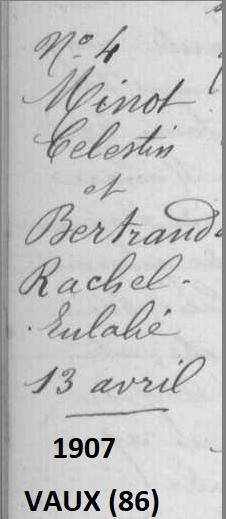 N° 4
Minot
Celestin
et
Bertrand
Rachel-
Eulalie
13 avril
1907
VAUX (86)